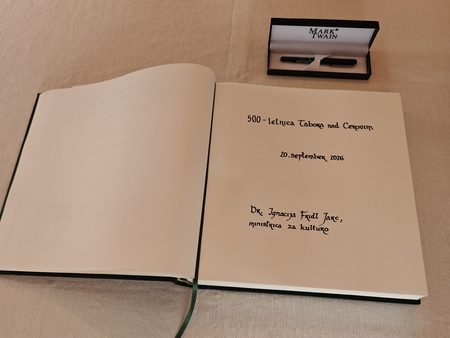 MARK
TWAIN
500-letnica Tabora nad Cerovim
20. september 2026
Dr. Ignacija Fridl Jarc,
ministrica za kulturo